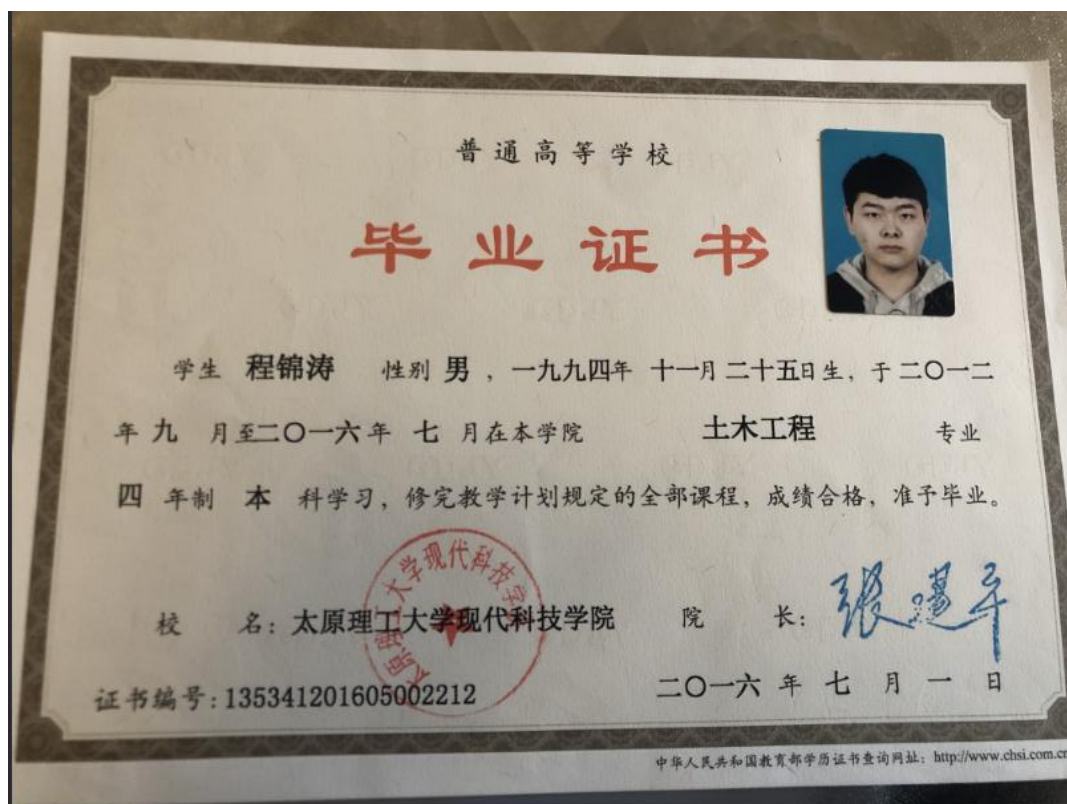 普通高等学校
毕业证书
学生 程锦涛 性别 男 , 一九九四年 十一月 二十五日生, 于 二〇一二
年 九 月至二〇一六年 七 月在本学院 土木工程 专业
四 年制 本 科学习, 修完教学计划规定的全部课程, 成绩合格, 准予毕业。
太原理工大学现代科技学院
校 名: 太原理工大学现代科技学院 院 长:
证书编号: 135341201605002212 二〇一六 年 七 月 一 日
中华人民共和国教育部学历证书查询网址: http://www.chsi.com.cn